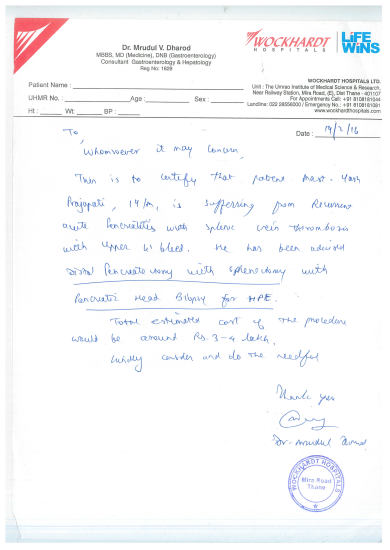 Dr. Mrudul V. Dharod
MBBS, MD (Medicine), DNB (Gastroenterology)
Consultant Gastroenterology & Hepatology
Reg No: 1629
WOCKHARDT
HOSPITALS
LiFE
WiNS
WOCKHARDT HOSPITALS LTD.
Unit : The Umrao Institute of Medical Science & Research,
Near Railway Station, Mira Road, (E), Dist Thane - 401107
For Appointments Call : +91 8108181044
Landline: 022 28556000 / Emergency No.: +91 8108181081
www.wockhardthospitals.com
Patient Name :
UHMR No. Age : Sex :
Ht : Wt : BP :
Date : 14/2/16
To
Whomsoever it may concern,
This is to certify that patient mast. Yash
Prajapati, 14/m, is suffering from Recurrent
acute Pancreatitis with splenic vein thrombosis
with upper GI bleed. He has been advised
Distal Pancreatectomy with splenectomy with
Pancreatic Head Biopsy for HPE.
Total estimated cost of the procedure
would be around Rs. 3-4 lakh.
Kindly consider and do the needful
Thank you
Dr. Mrudul Dharod
WOCKHARDT HOSPITALS
Mira Road
Thane